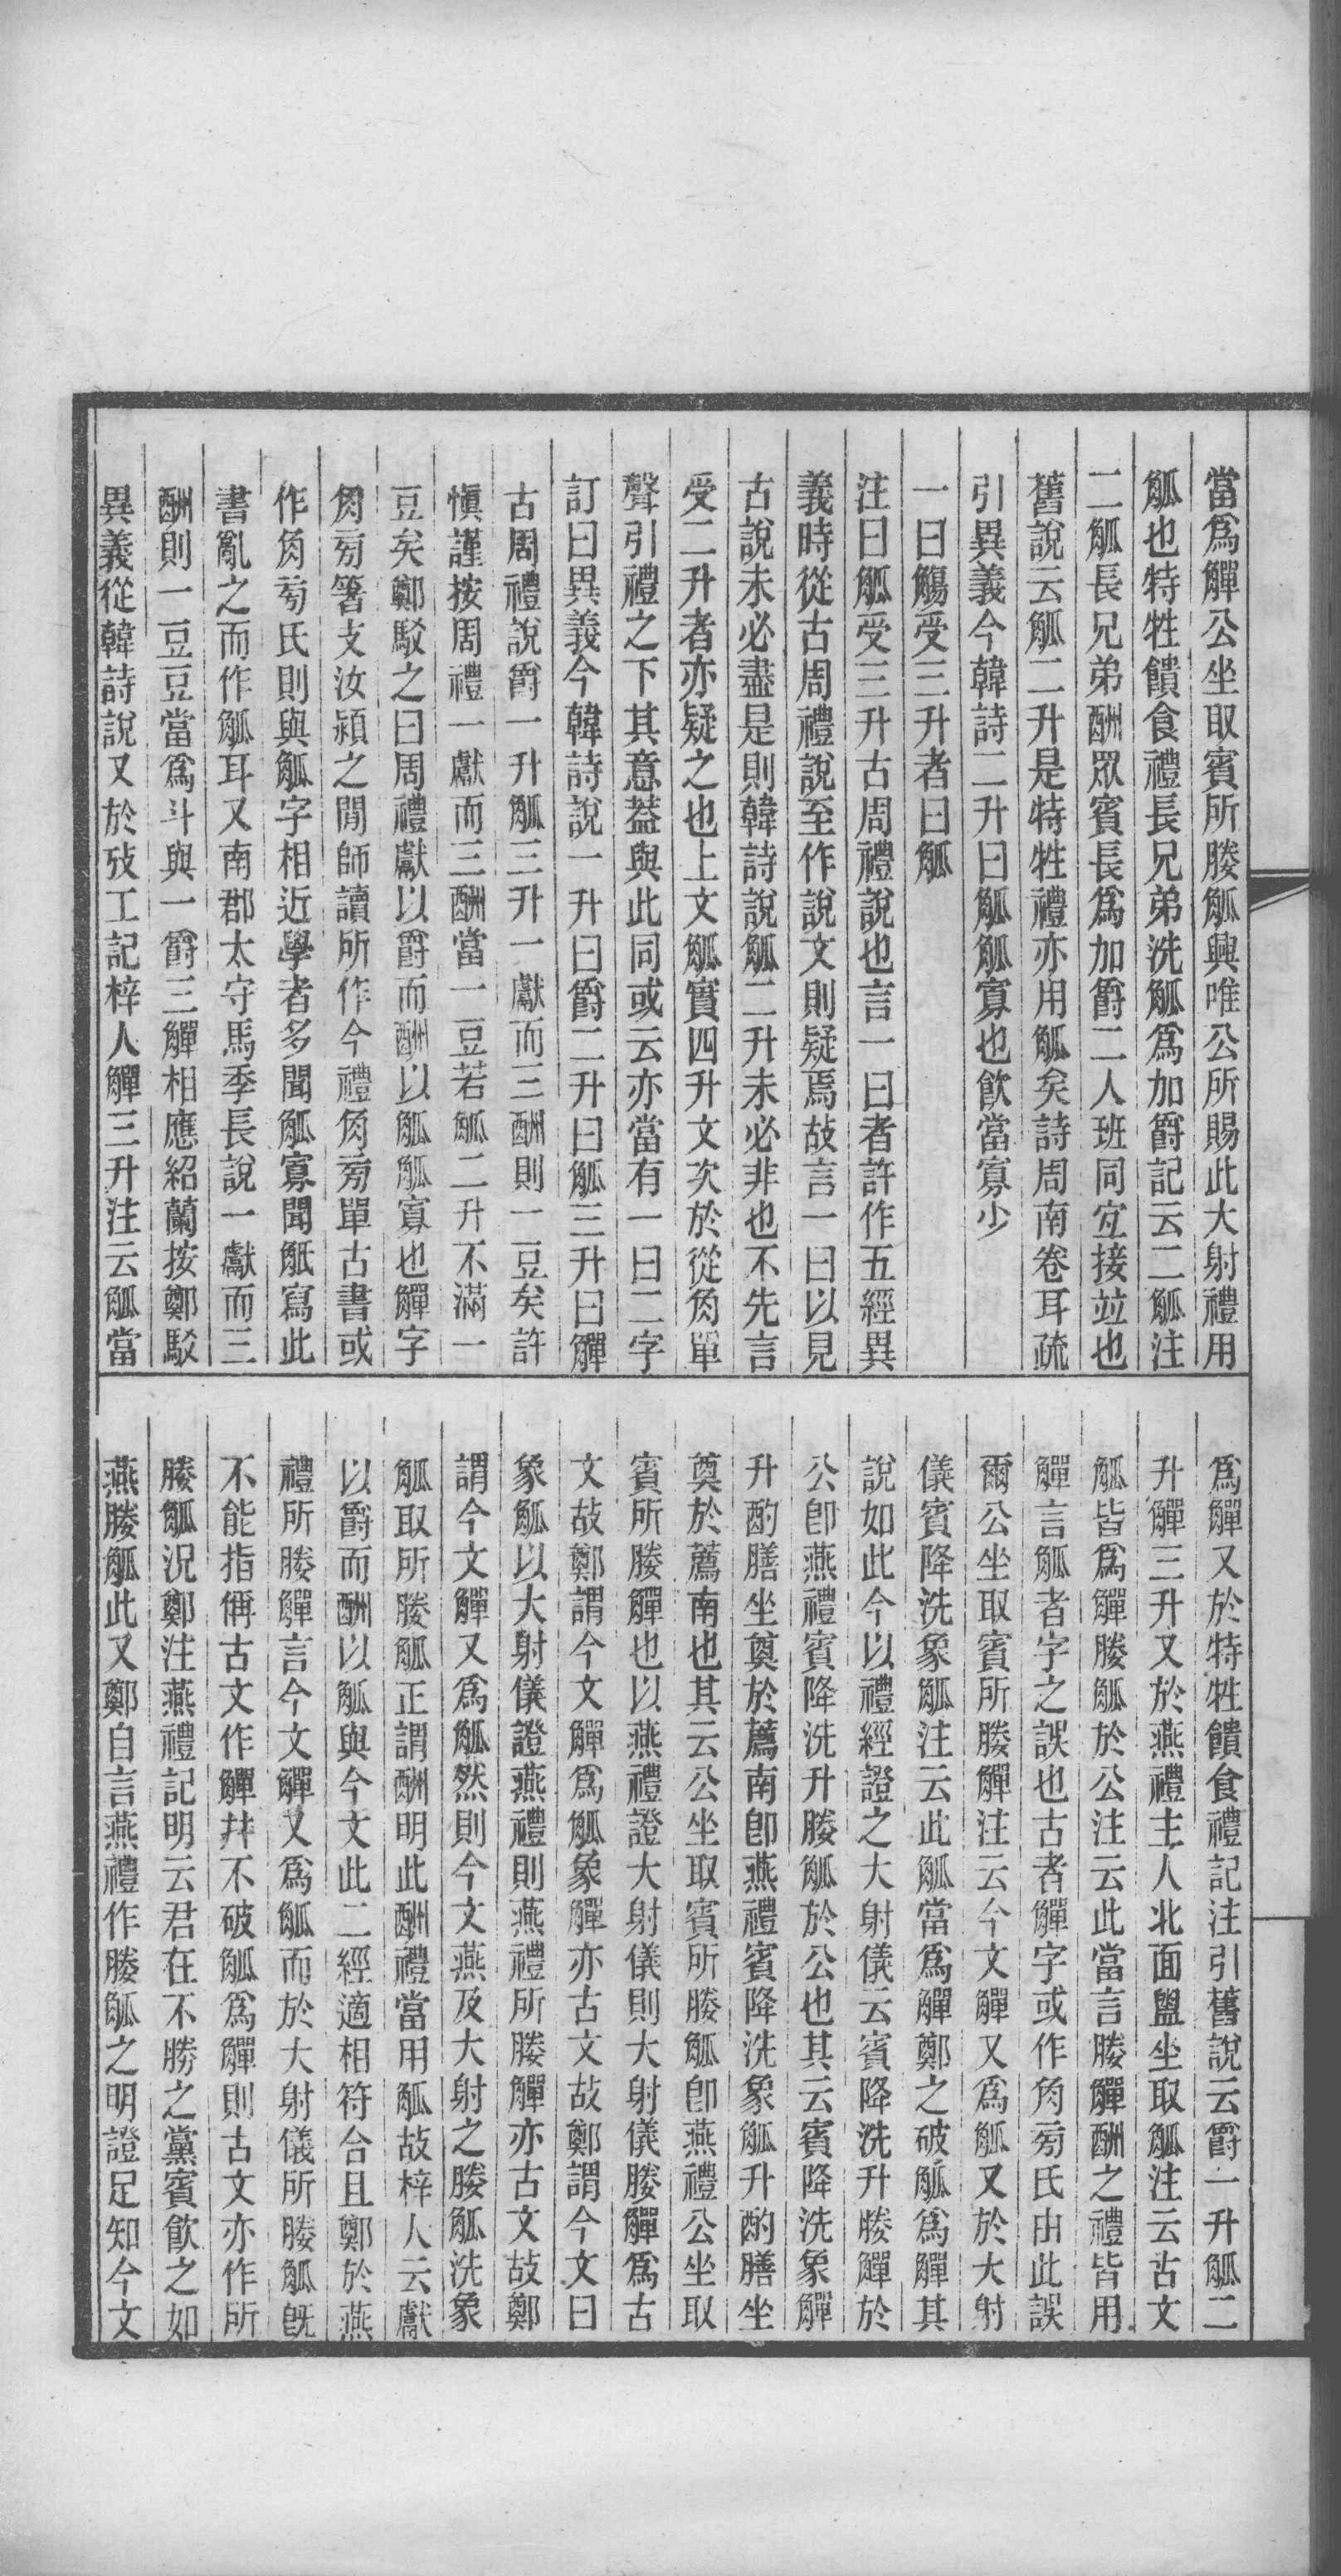 當爲觶公坐取賓所媵觚興唯公所賜此大射禮用
觚也特牲饋食禮長兄弟洗觚爲加爵記云二觚注
二觚長兄弟酬眾賓長爲加爵二人班同宐接竝也
舊說云觚二升是特牲禮亦用觚矣詩周南卷耳疏
引異義今韓詩二升曰觚觚寡也飮當寡少
一曰觴受三升者曰觚
注曰觚受三升古周禮說也言一曰者許作五經異
義時從古周禮說至作說文則疑焉故言一曰以見
古說未必盡是則韓詩說觚二升未必非也不先言
受二升者亦疑之也上文觚實四升文次於從𧢲單
聲引禮之下其意葢與此同或云亦當有一曰二字
訂曰異義今韓詩說一升曰爵二升曰觚三升曰觶
古周禮說爵一升觚三升一獻而三酬則一豆矣許
愼謹按周禮一獻而三酬當一豆若觚二升不滿一
豆矣鄭駁之曰周禮獻以爵而酬以觚觚寡也觶字
𧢲㫄箸支汝潁之閒師讀所作今禮𧢲㫄單古書或
作𧢲㫄氏則與觚字相近學者多聞觚寡聞觗寫此
書亂之而作觚耳又南郡太守馬季長說一獻而三
酬則一豆豆當爲斗與一爵三觶相應紹蘭按鄭駁
異義從韓詩說又於攷工記梓人觶三升注云觚當
爲觶又於特牲饋食禮記注引舊說云爵一升觚二
升觶三升又於燕禮主人北面盥坐取觚注云古文
觚皆爲觶媵觚於公注云此當言媵觶酬之禮皆用
觶言觚者字之誤也古者觶字或作𧢲㫄氏由此誤
爾公坐取賓所媵觶注云今文觶又爲觚又於大射
儀賓降洗象觚注云此觚當爲觶鄭之破觚爲觶其
說如此今以禮經證之大射儀云賓降洗升媵觶於
公卽燕禮賓降洗升媵觚於公也其云賓降洗象觶
升酌膳坐奠於薦南卽燕禮賓降洗象觚升酌膳坐
奠於薦南也其云公坐取賓所媵觚卽燕禮公坐取
賓所媵觶也以燕禮證大射儀則大射儀媵觶爲古
文故鄭謂今文觶爲觚象觶亦古文故鄭謂今文曰
象觚以大射儀證燕禮則燕禮所媵觶亦古文故鄭
謂今文觶又爲觚然則今文燕及大射之媵觚洗象
觚取所媵觚正謂酬明此酬禮當用觚故梓人云獻
以爵而酬以觚與今文此二經適相符合且鄭於燕
禮所媵觶言今文觶又爲觚而於大射儀所媵觚旣
不能指偁古文作觶幷不破觚爲觶則古文亦作所
媵觚況鄭注燕禮記明云君在不勝之黨賓飮之如
燕媵觚此又鄭自言燕禮作媵觚之明證足知今文